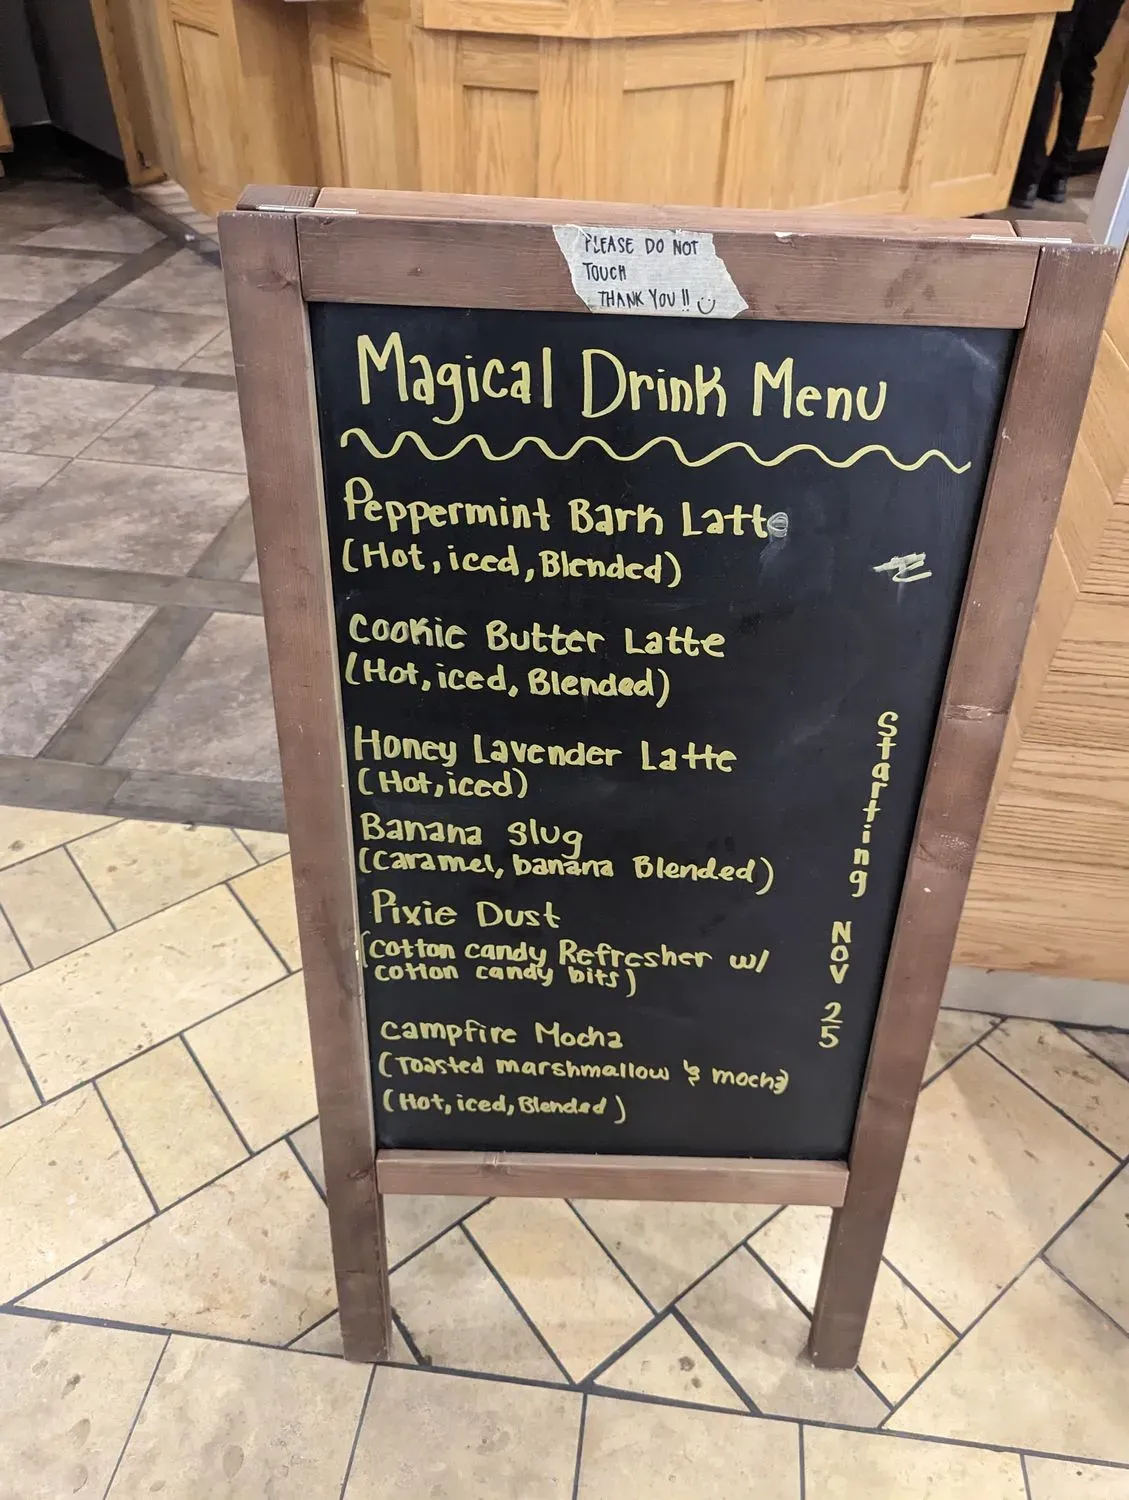 PLEASE DO NOT
TOUCH
THANK YOU!!
Magical Drink Menu
Peppermint Bark Latte
(Hot, iced, Blended)
Cookie Butter Latte
(Hot, iced, Blended)
Honey Lavender Latte
(Hot, iced)
Banana Slug
(Caramel, banana Blended)
Pixie Dust
(cotton candy Refresher w/
cotton candy bits)
Campfire Mocha
(Toasted marshmallow & mocha)
(Hot, iced, Blended)
Starting
Nov
25